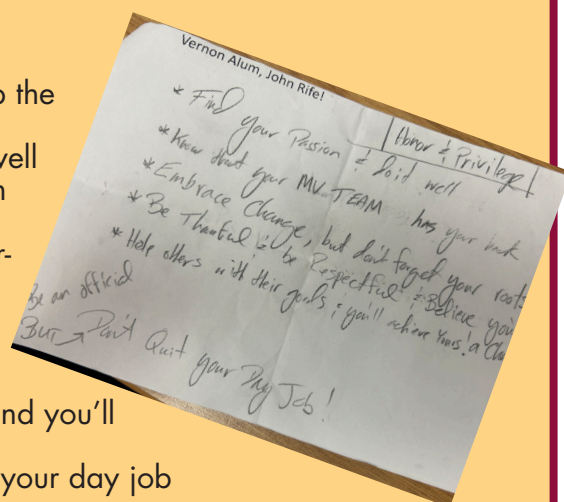 o the
vell
n
r-
nd you'll
your day job
Vernon Alum, John Rife!
Honor & Privilege
* Find your Passion & do it well
* Know that your MV TEAM has your back
* Embrace Change, but don't forget your roots
* Be Thankful & be Respectful & Believe you
* Help others with their goals & you'll achieve Yours! a
Be an official
BUT → Don't Quit your Day Job!